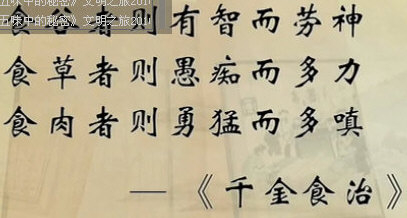 五味中的秘密》文明之旅201
五味中的秘密》文明之旅201
食谷者则有智而劳神
食草者则愚痴而多力
食肉者则勇猛而多嗔
——《千金食治》